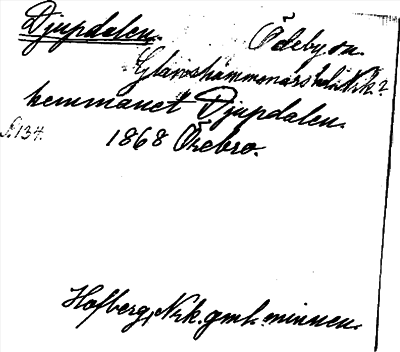 Djupdalen. Ödeby sn.
Glanshammars hd. Nrk?
hemmanet Djupdalen.
s. 134. 1868 Örebro.
Hofberg, Nrk. gml. minnen.